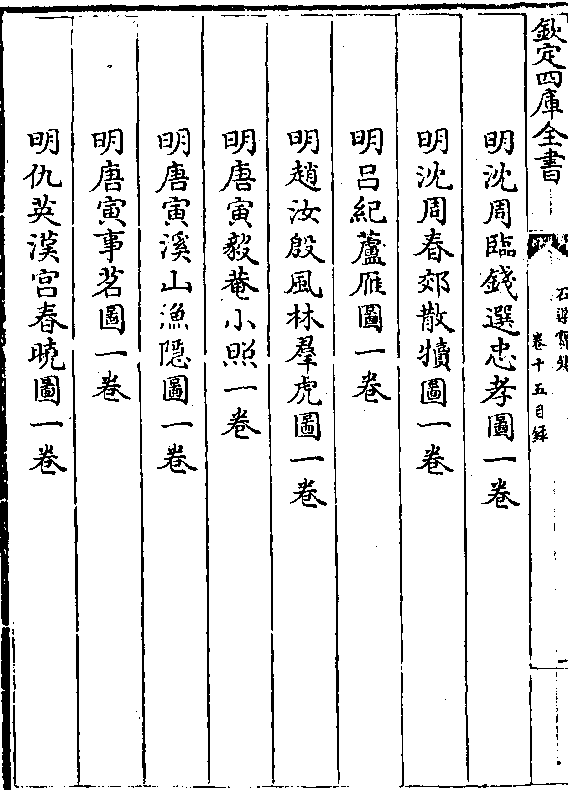 欽定四庫全書
卷十五目錄
明沈周臨錢選忠孝圖一卷
明沈周春郊散犢圖一卷
明呂紀蘆雁圖一卷
明趙汝殷風林羣虎圖一卷
明唐寅毅菴小照一卷
明唐寅溪山漁隱圖一卷
明唐寅事茗圖一卷
明仇英漢宮春曉圖一卷